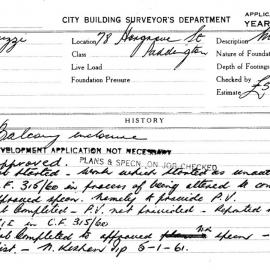 CITY BUILDING SURVEYOR'S DEPARTMENT
APPLIC
YEAR
Location 78 Hargrave St
Class Paddington
Live Load
Foundation Pressure
Description
Nature of Foundat
Depth of Footings
Checked by
Estimate £5
HISTORY
Balcony enclosure
DEVELOPMENT APPLICATION NOT NECESSARY
approved. PLANS & SPECN ON JOB CHECKED
ot started - Work which started as unaut
C.F. 315/60 in process of being altered to con
approved specn. namely to provide P.V.
ot completed - P.V. not provided - Reported
in C.F. 315/60
ot completed to approved specn -
6-1-61.